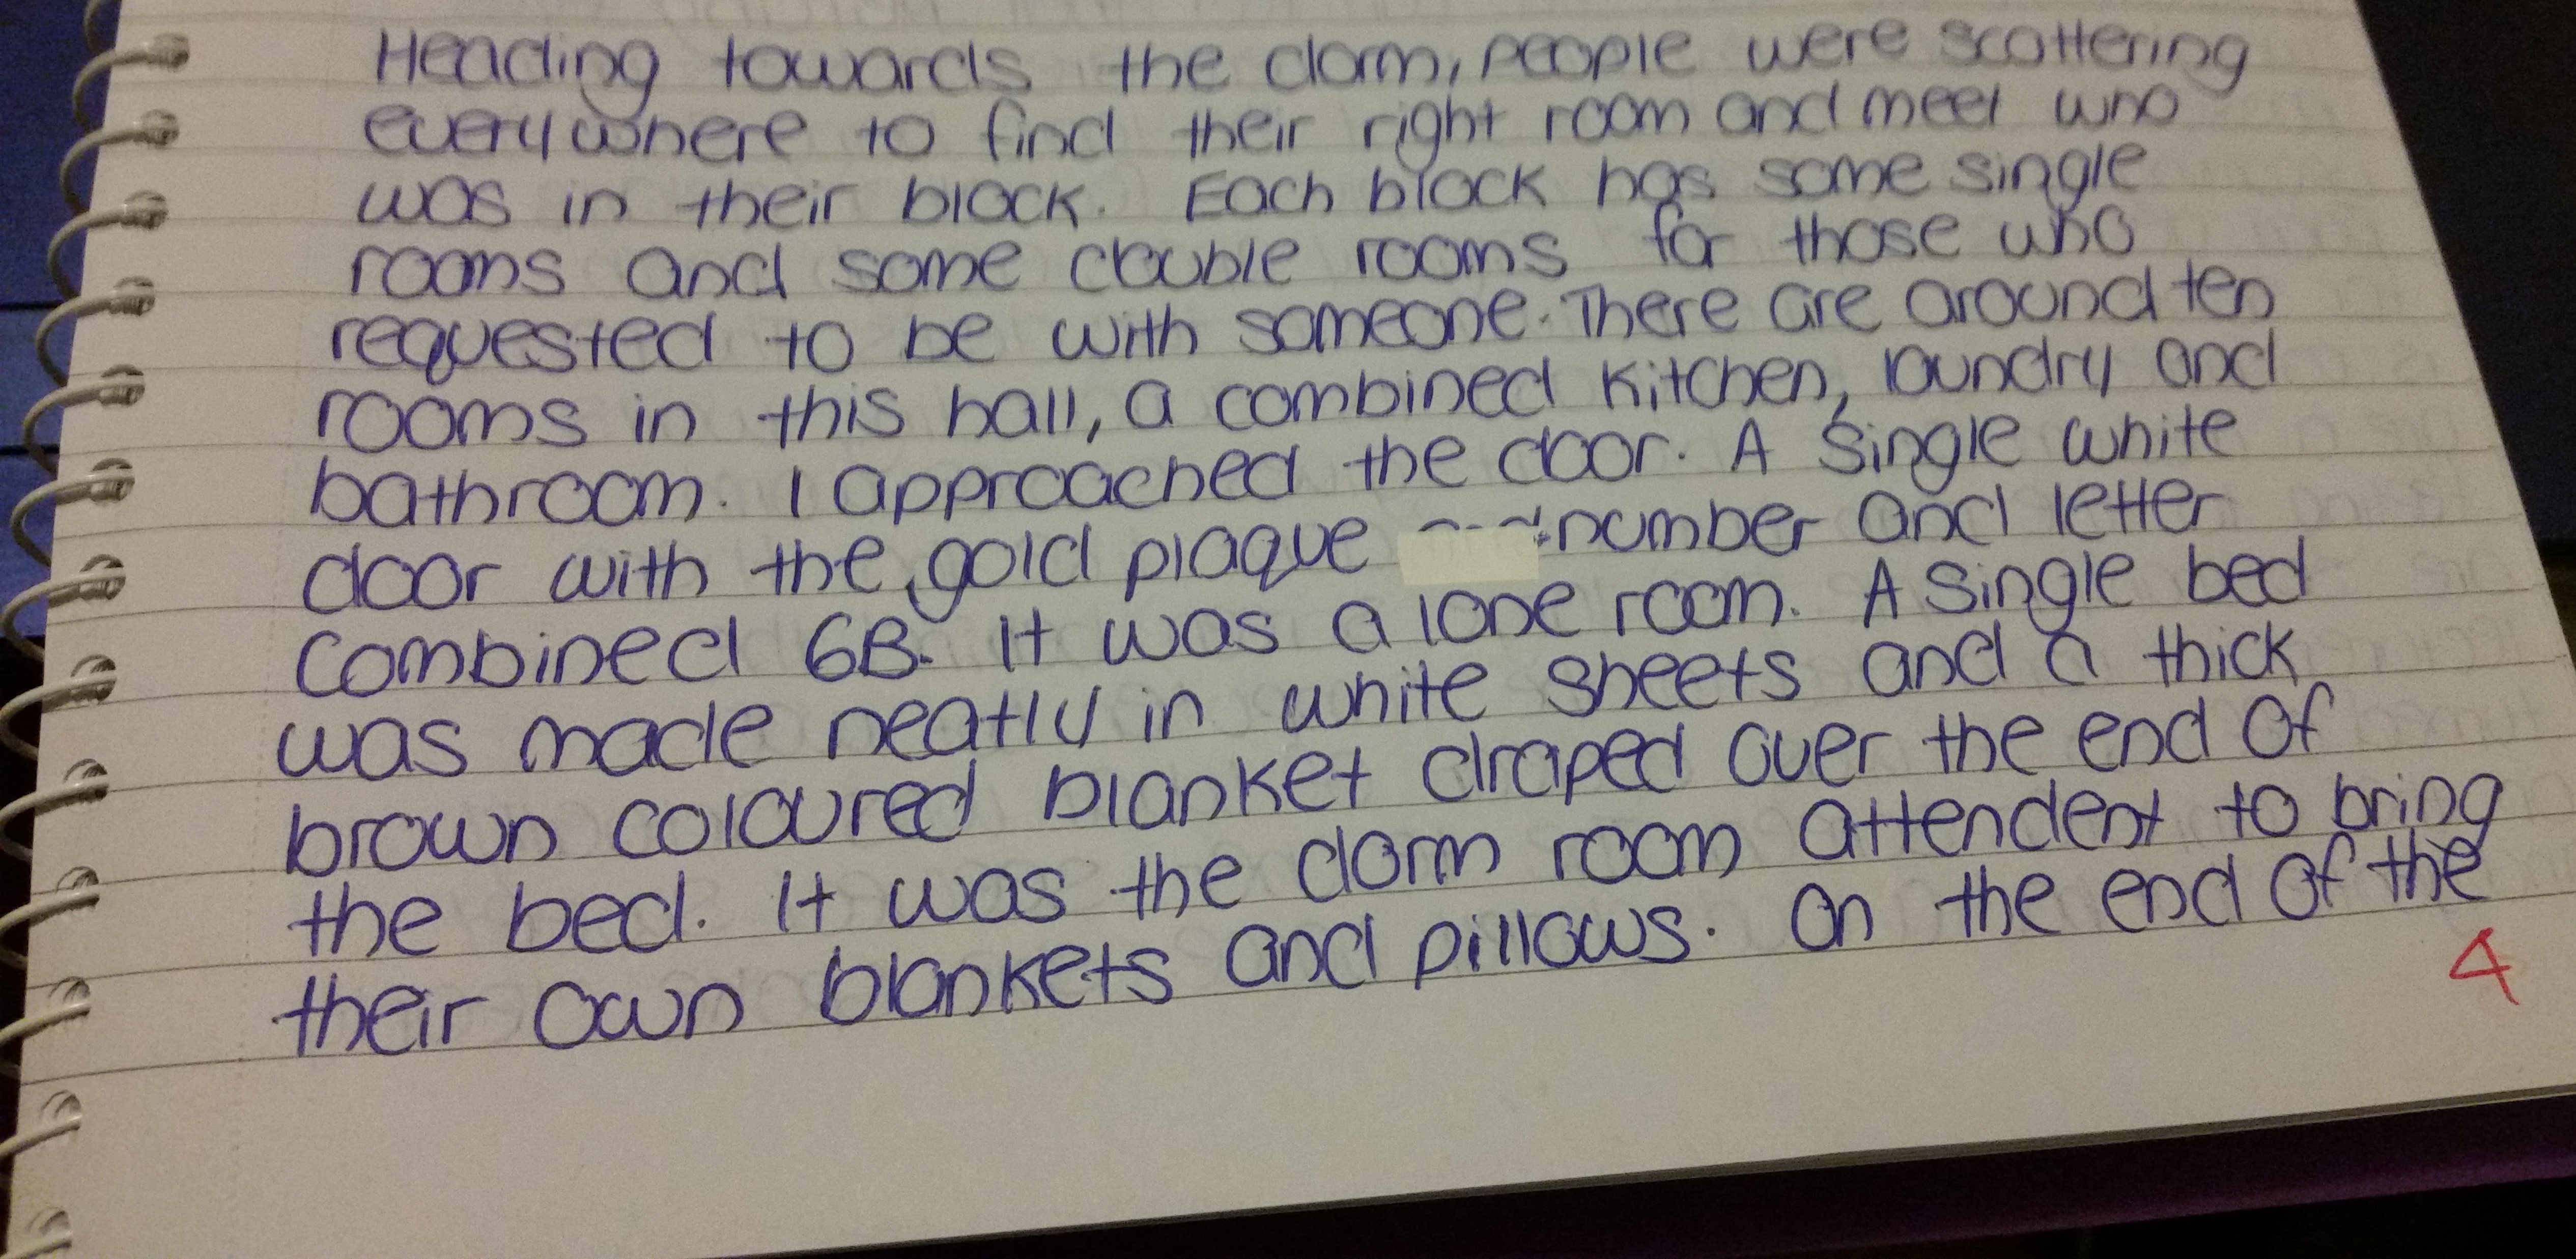 Heading towards the dorm, people were scattering
everywhere to find their right room and meet who
was in their block. Each block has some single
rooms and some double rooms for those who
requested to be with someone. There are around ten
rooms in this hall, a combined kitchen, laundry and
bathroom. I approached the door. A single white
door with the gold plaque number and letter
combined 6B. It was a lone room. A single bed
was made neatly in white sheets and a thick
brown coloured blanket draped over the end of
the bed. It was the dorm room attendent to bring
their own blankets and pillows. On the end of the
4